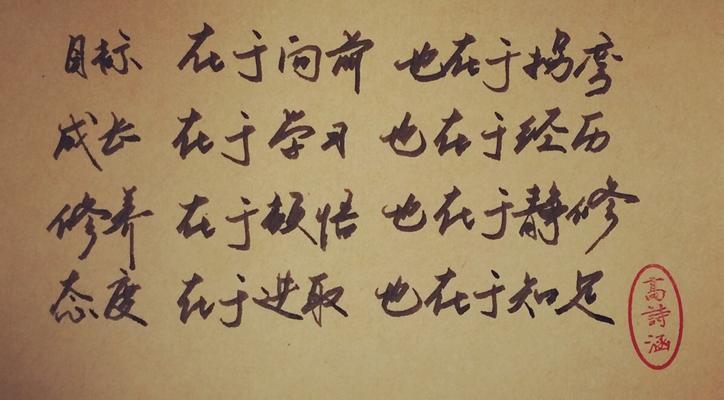 目标 在于向前 也在于拐弯
成长 在于学习 也在于经历
修养 在于顿悟 也在于静修
态度 在于进取 也在于知足
高詩涵